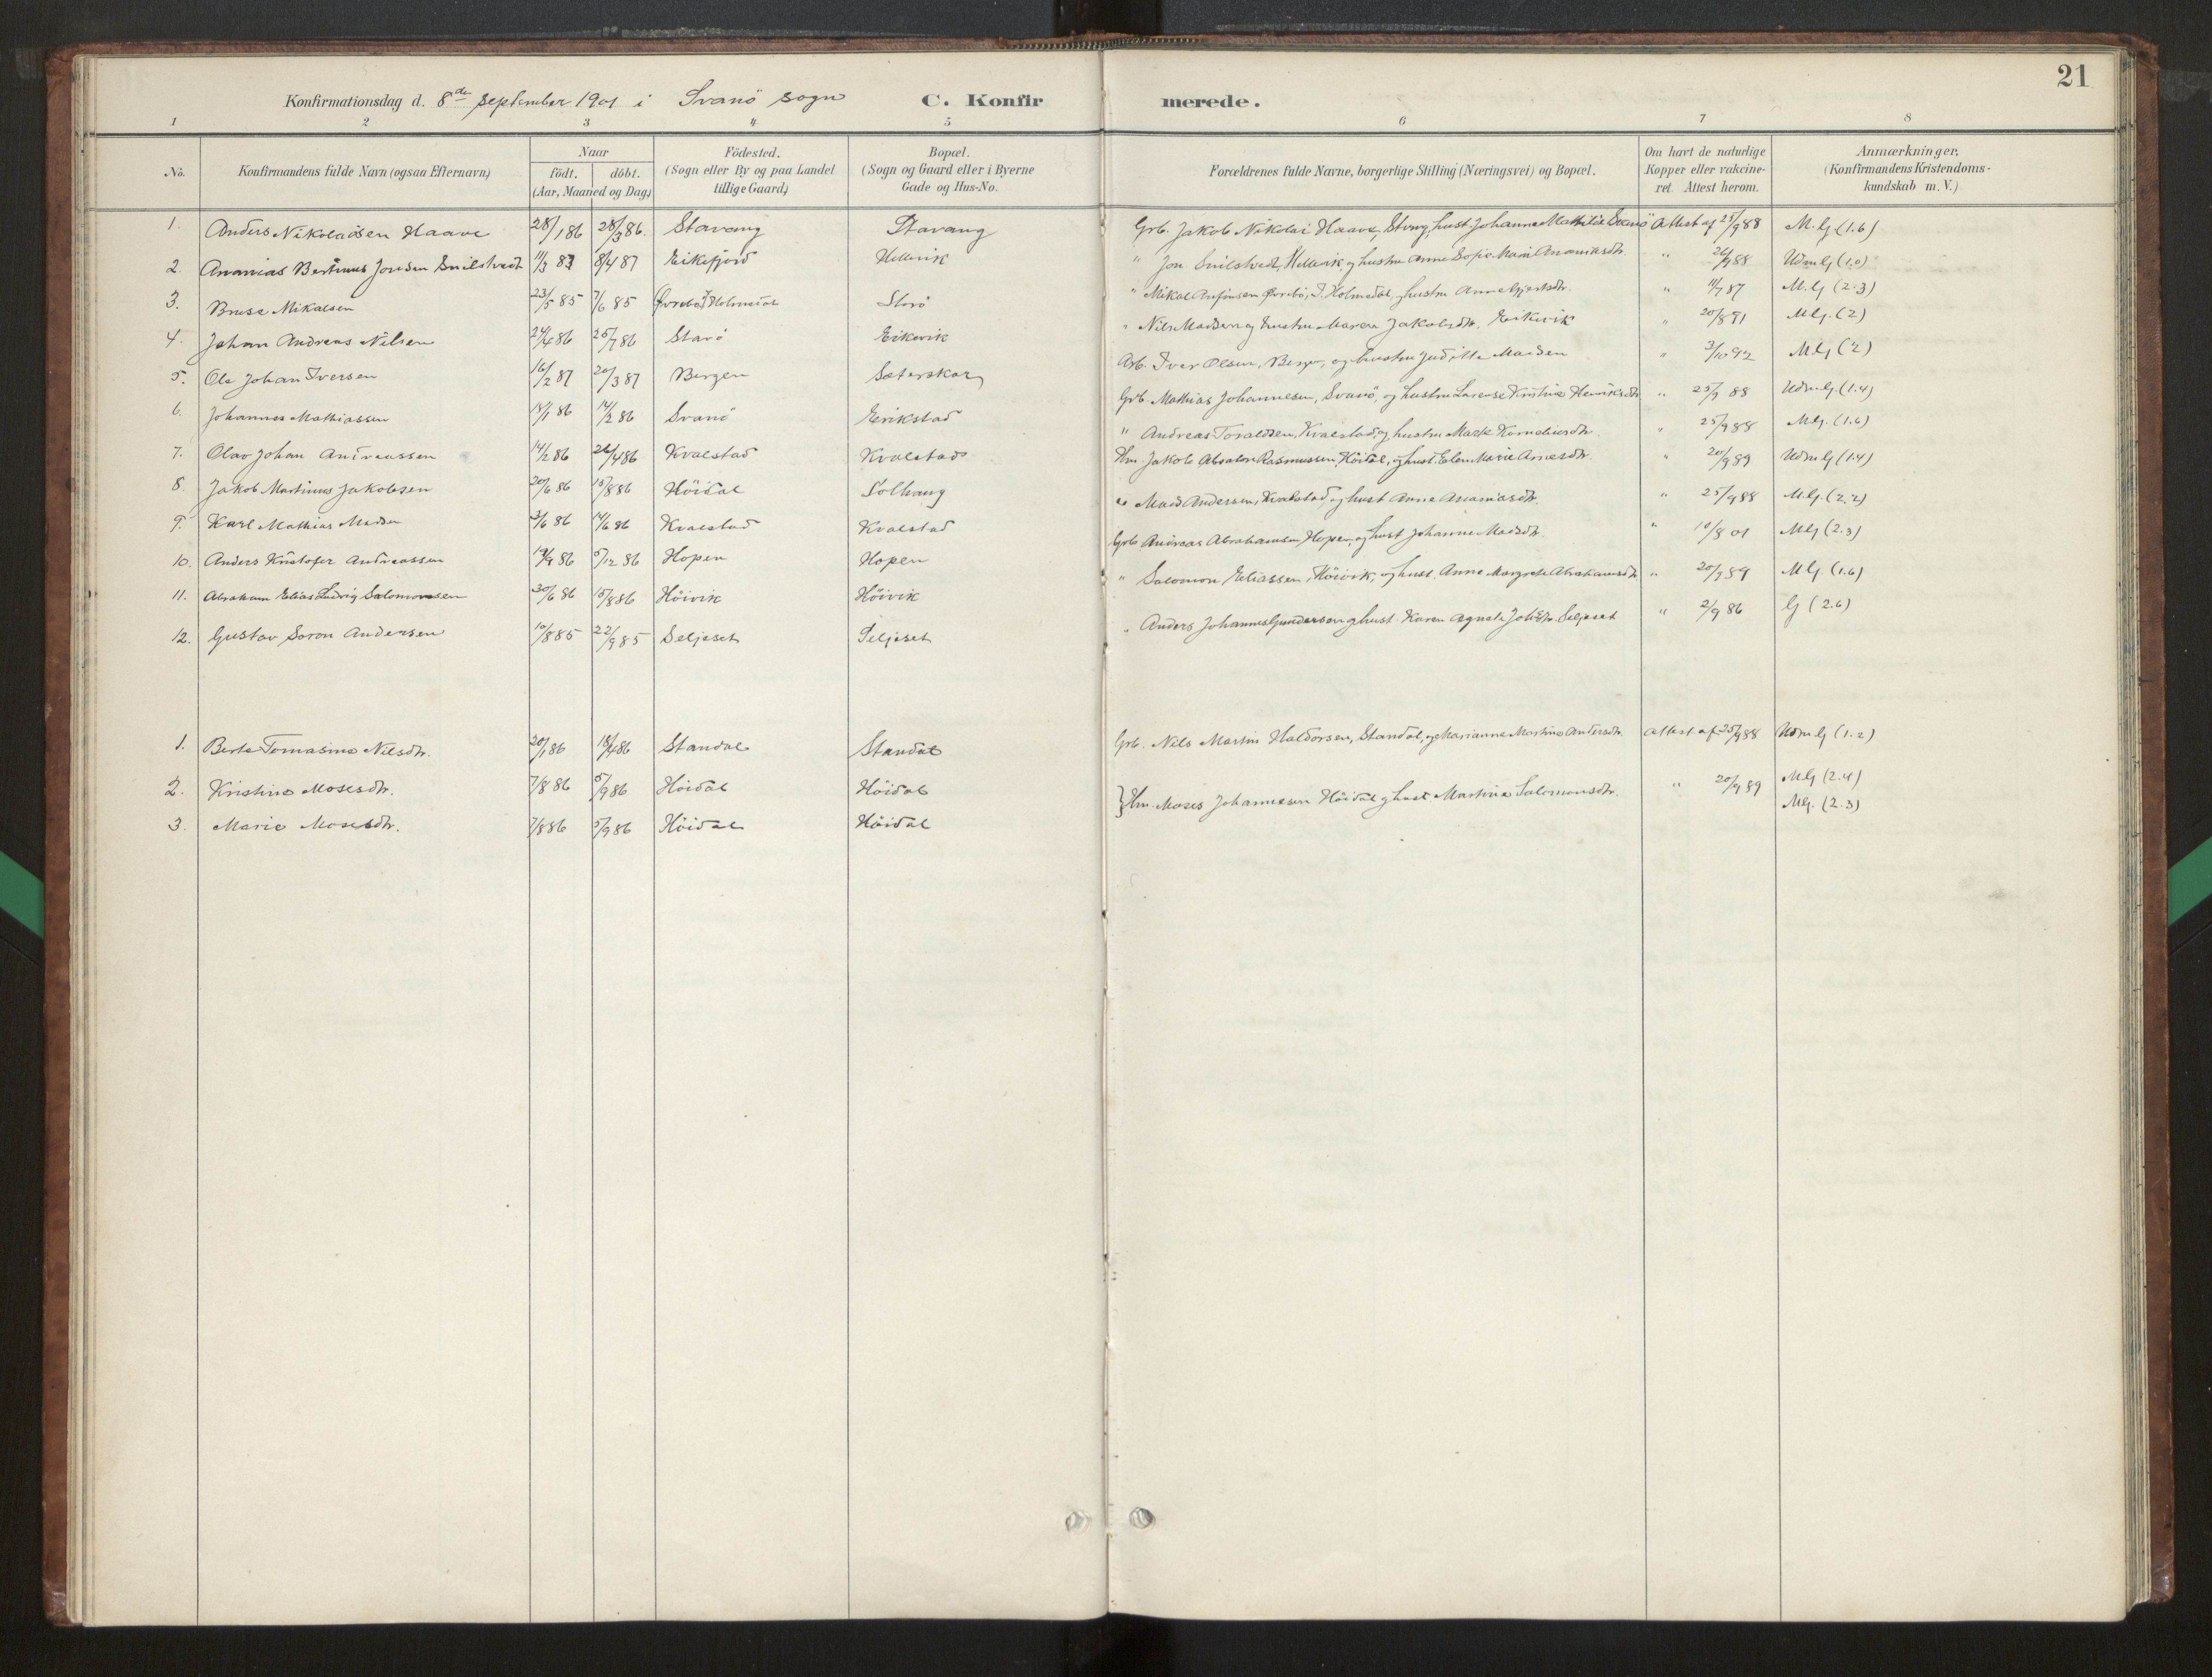 21
Konfirmationsdag d. 8de september 1901 i Svanö sogn C. Konfirmerede.
1 2 3 4 5 6 7 8
No. Konfirmandens fulde Navn (ogsaa Efternavn) Naar födt. döbt. (Aar, Maaned og Dag) Födested. (Sogn eller By og paa Landet tillige Gaard) Bopæl. (Sogn og Gaard eller i Byerne Gade og Hus-No. Forældrenes fulde Navne, borgerlige Stilling (Næringsvei) og Bopæl. Om havt de naturlige Kopper eller vakcineret. Attest herom. Anmærkninger. (Konfirmandens Kristendomskundskab m. V.)
1. Anders Nikolaisen Haave 28/1 86 28/3 86. Stavang Stavang Grb. Jakob Nikolai Haave, Stvng, hust. Johanne Mathilde Svanö Attest af 25/9 88 M.G (1.6)
2. Ananias Bertinus Jonsen Snilstvedt 11/3 87 8/4 87 Eikefjord Hellevik " Jon Snilstvedt, Hellevik, og hustru Anne Sofie Marie Ananiasdtr. " 26/9 88 Udm G (1.0)
3. Bruse Mikalsen 23/5 85 7/6 85 Övrebö, Y. Holmedal Storö " Mikal Anfinsen Övrebö, Y. Holmedal, og hustru Anne Gjertsdtr. " 11/7 87 M.G (2.3)
4. Johan Andreas Nilsen 24/4 86 25/7 86 Stavö Eikevik " Nils Madsen og hustru Maren Jakobsdtr. Eikevik " 20/8 91 M.G. (2)
5. Ole Johan Iversen 16/2 87 20/3 87 Bergen Sæterskar Arb. Iver Olsen, Bergen, og hustru Juditte Madsen " 3/10 92 M.G (2)
6. Johannes Mathiassen 18/1 86 14/2 86 Svanö Erikstad Grb. Mathias Johannesen, Svanö, og hustru Larense Kristine Henriksdtr " 25/9 88 Udm.G. (1.4)
7. Olav Johan Andreassen 14/2 86 26/4 86 Kvalstad Kvalstad " Andreas Toraldsen, Kvalstad, og hustru Marte Korneliusdtr. " 25/9 88 M.G. (1.6)
8. Jakob Martinus Jakobsen 20/6 86 15/8 86 Höidal Solhaug Hm. Jakob Absalon Rasmussen, Höidal, og hust. Elen Marie Arnesdtr. " 20/9 89 Udm G (1.4)
9. Karl Mathias Madsen 3/6 86 14/6 86 Kvalstad Kvalstad " Mads Andersen, Kvalstad, og hust Anne Ananiasdtr. " 25/9 88 M.G. (2.2)
10. Anders Kristofer Andreassen 19/9 86 5/12 86 Hopen Hopen Grb Andreas Abrahamsen, Hopen, og hust Johanne Madsdtr. " 10/8 01 M.G (2.3)
11. Abraham Elias Ludvig Salomonsen 30/6 86 15/8 86 Höivik Höivik " Salomon Eliassen, Höivik, og hust. Anne Margrete Abrahamsdtr " 20/9 89 M.G. (1.6)
12. Gustav Soron Andersen 10/8 85 22/9 85 Seljeset Seljeset " Anders Johannes Gundersen og hust. Karen Agnete Johsdtr. Seljeset " 2/9 86 G (2.6)
1. Berte Tomasine Nilsdtr. 20/1 86 18/4 86 Standal Standal Grb. Nils Martin Haldorsen, Standal, og Marianne Martine Andersdtr. Attest af 25/9 88 Udm G (1.2)
2. Kristine Mosesdtr. 7/8 86 5/9 86 Höidal Höidal } Hm. Moses Johannesen Höidal og hust Martine Salomonsdtr. " 20/9 89 M.G (2.4)
3. Marie Mosesdtr. 7/8 86 5/9 86 Höidal Höidal M.G. (2.3)